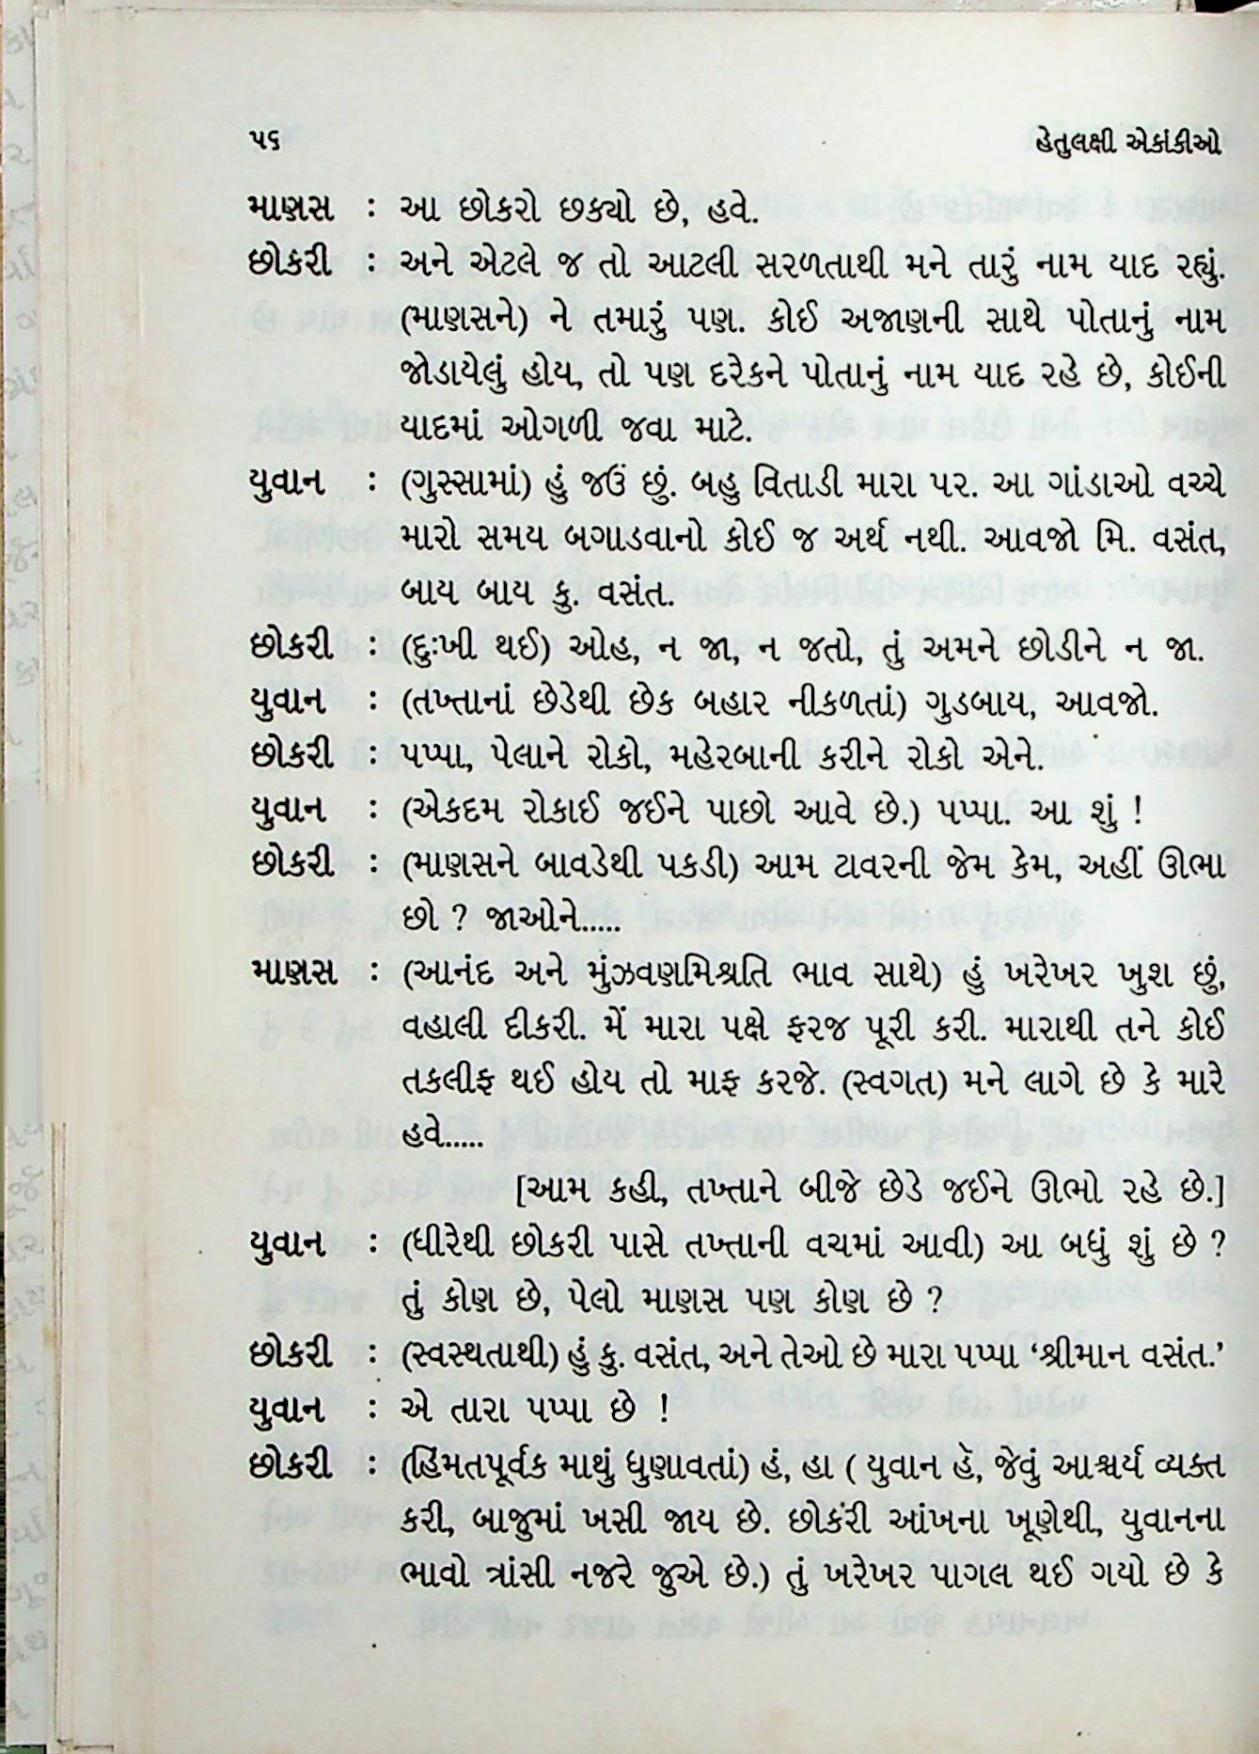 ૫૬ હેતુલક્ષી એકાંકીઓ
માણસ : આ છોકરો છક્યો છે, હવે.
છોકરી : અને એટલે જ તો આટલી સરળતાથી મને તારું નામ યાદ રહ્યું.
(માણસને) ને તમારું પણ. કોઈ અજાણની સાથે પોતાનું નામ
જોડાયેલું હોય, તો પણ દરેકને પોતાનું નામ યાદ રહે છે, કોઈની
યાદમાં ઓગળી જવા માટે.
યુવાન : (ગુસ્સામાં) હું જઉં છું. બહુ વિતાડી મારા પર. આ ગાંડાઓ વચ્ચે
મારો સમય બગાડવાનો કોઈ જ અર્થ નથી. આવજો મિ. વસંત,
બાય બાય કુ. વસંત.
છોકરી : (દુઃખી થઈ) ઓહ, ન જા, ન જતો, તું અમને છોડીને ન જા.
યુવાન : (તખ્તાનાં છેડેથી છેક બહાર નીકળતાં) ગુડબાય, આવજો.
છોકરી : પપ્પા, પેલાને રોકો, મહેરબાની કરીને રોકો એને.
યુવાન : (એકદમ રોકાઈ જઈને પાછો આવે છે.) પપ્પા. આ શું !
છોકરી : (માણસને બાવડેથી પકડી) આમ ટાવરની જેમ કેમ, અહીં ઊભા
છો ? જાઓને.....
માણસ : (આનંદ અને મુંઝવણમિશ્રતિ ભાવ સાથે) હું ખરેખર ખુશ છું,
વહાલી દીકરી. મેં મારા પક્ષે ફરજ પૂરી કરી. મારાથી તને કોઈ
તકલીફ થઈ હોય તો માફ કરજે. (સ્વગત) મને લાગે છે કે મારે
હવે.....
[આમ કહી, તખ્તાને બીજે છેડે જઈને ઊભો રહે છે.]
યુવાન : (ધીરેથી છોકરી પાસે તખ્તાની વચમાં આવી) આ બધું શું છે ?
તું કોણ છે, પેલો માણસ પણ કોણ છે ?
છોકરી : (સ્વસ્થતાથી) હું કુ. વસંત, અને તેઓ છે મારા પપ્પા ‘શ્રીમાન વસંત.’
યુવાન : એ તારા પપ્પા છે !
છોકરી : (હિંમતપૂર્વક માથું ધુણાવતાં) હં, હા ( યુવાન હેં, જેવું આશ્ચર્ય વ્યક્ત
કરી, બાજુમાં ખસી જાય છે. છોકરી આંખના ખૂણેથી, યુવાનના
ભાવો ત્રાંસી નજરે જુએ છે.) તું ખરેખર પાગલ થઈ ગયો છે કે